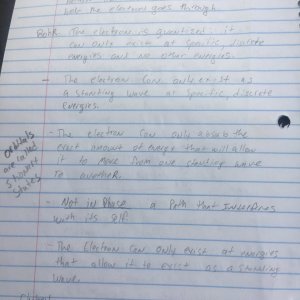 help the electron goes through
Bohr The electron is quantised: it
can only exist at specific, discrete
energies and no other energies.
- The electron can only exist as
a standing wave at specific, discrete
energies.
- The electron can only absorb the
exact amount of energy that will allow
it to move from one standing wave
to another.
orbitals
are called
states
- Not in Phase a Path that Interfires
with its self
- The Electron can only exist at energies
that allow it to exist as a standing
wave.